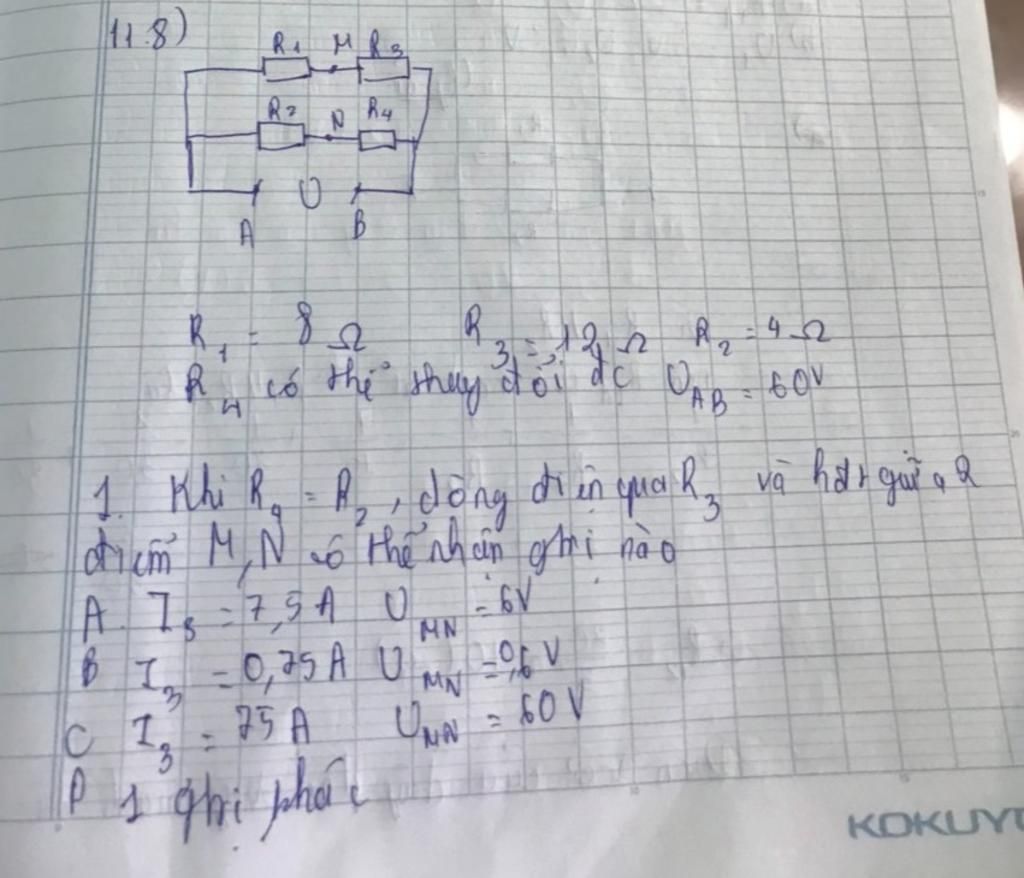 11.8)
R1 M R3
R2 N R4
U
A B
R1 = 8 Ω R3 = 12 Ω R2 = 4 Ω
R4 có thể thuy đổi đc UAB = 60V
1. Khi R4 = R2, dòng điện qua R3 và hđt giữa 2
điểm M, N có thể nhận ghị nào
A. I3 = 7,5A UMN = 6V
B I3 = 0,75A UMN = 0,6V
C I3 = 75A UMN = 60V
D 1 ghị khác
KOKUYO